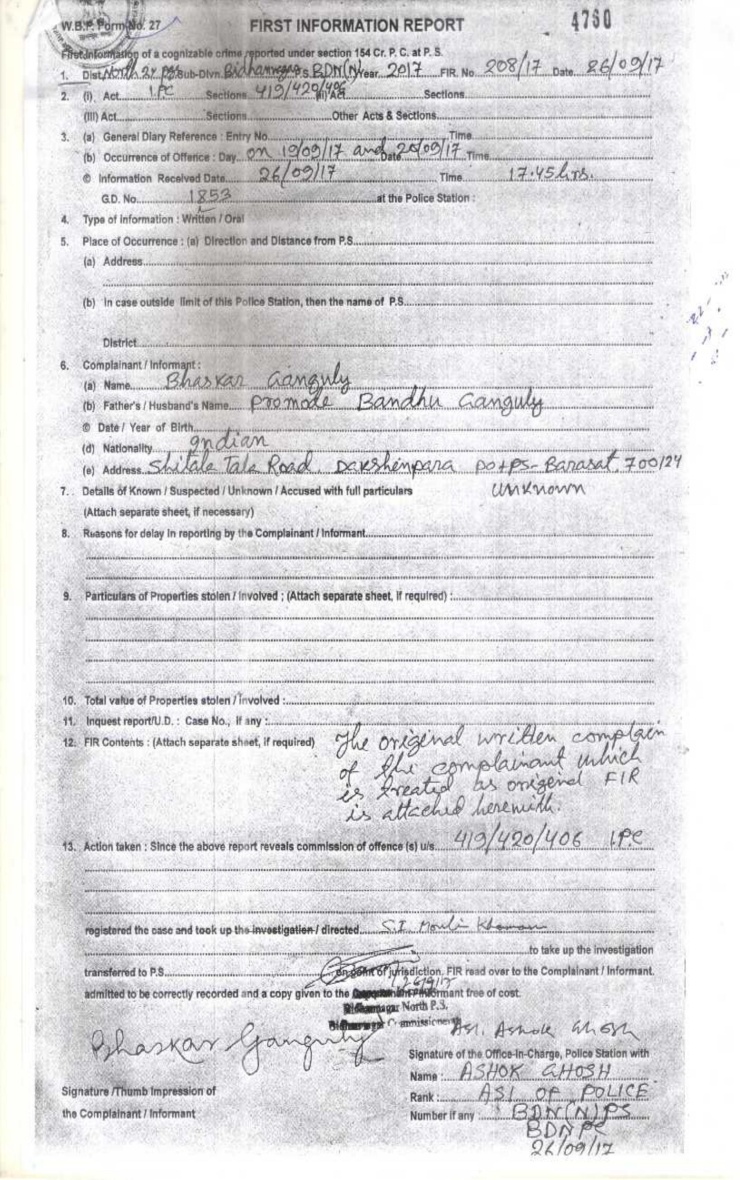 W.B.P. Form No. 27
FIRST INFORMATION REPORT
4760
First Information of a cognizable crime reported under section 154 Cr. P. C. at P. S.
1. Dist. North 24 PS Sub-Divn. Bidhannagar P.S. BDN(N) Year 2017 FIR. No. 208/17 Date 26/09/17
2. (i) Act IPC Sections 419/420/406 (ii) Act Sections
(iii) Act Sections Other Acts & Sections
3. (a) General Diary Reference : Entry No. Time
(b) Occurrence of Offence : Day on 19/09/17 and Date 20/09/17 Time
© Information Received Date 26/09/17 Time 17.45 hrs.
G.D. No. 1853 at the Police Station :
4. Type of information : Written / Oral
5. Place of Occurrence : (a) Direction and Distance from P.S.
(a) Address
(b) In case outside limit of this Police Station, then the name of P.S.
District
6. Complainant / Informant :
(a) Name Bhaskar Ganguly
(b) Father's / Husband's Name Promode Bandhu Ganguly
© Date / Year of Birth
(d) Nationality Indian
(e) Address Shitala Tala Road, Dakshinpara PO+PS- Barasat, 700124
7. Details of Known / Suspected / Unknown / Accused with full particulars Unknown
(Attach separate sheet, if necessary)
8. Reasons for delay in reporting by the Complainant / Informant
9. Particulars of Properties stolen / Involved ; (Attach separate sheet, if required) :
10. Total value of Properties stolen / Involved :
11. Inquest report/U.D. : Case No., if any :
12. FIR Contents : (Attach separate sheet, if required) The original written complain
of the complainant which
is treated as original FIR
is attached herewith.
13. Action taken : Since the above report reveals commission of offence (s) u/s 419/420/406 I.P.C
registered the case and took up the investigation / directed S.I. Mouli
to take up the investigation
transferred to P.S. on point of jurisdiction. FIR read over to the Complainant / Informant.
26/9/17
admitted to be correctly recorded and a copy given to the Informant free of cost.
Bidhannagar North P.S.
Bidhannagar Commissionerate
Bhaskar Ganguly
ASI. Ashok Ghosh
Signature of the Office-in-Charge, Police Station with
Name : ASHOK GHOSH
Signature /Thumb Impression of
Rank : ASI OF POLICE
the Complainant / Informant
Number if any : BDN(N)PS
BDN PC
26/09/17